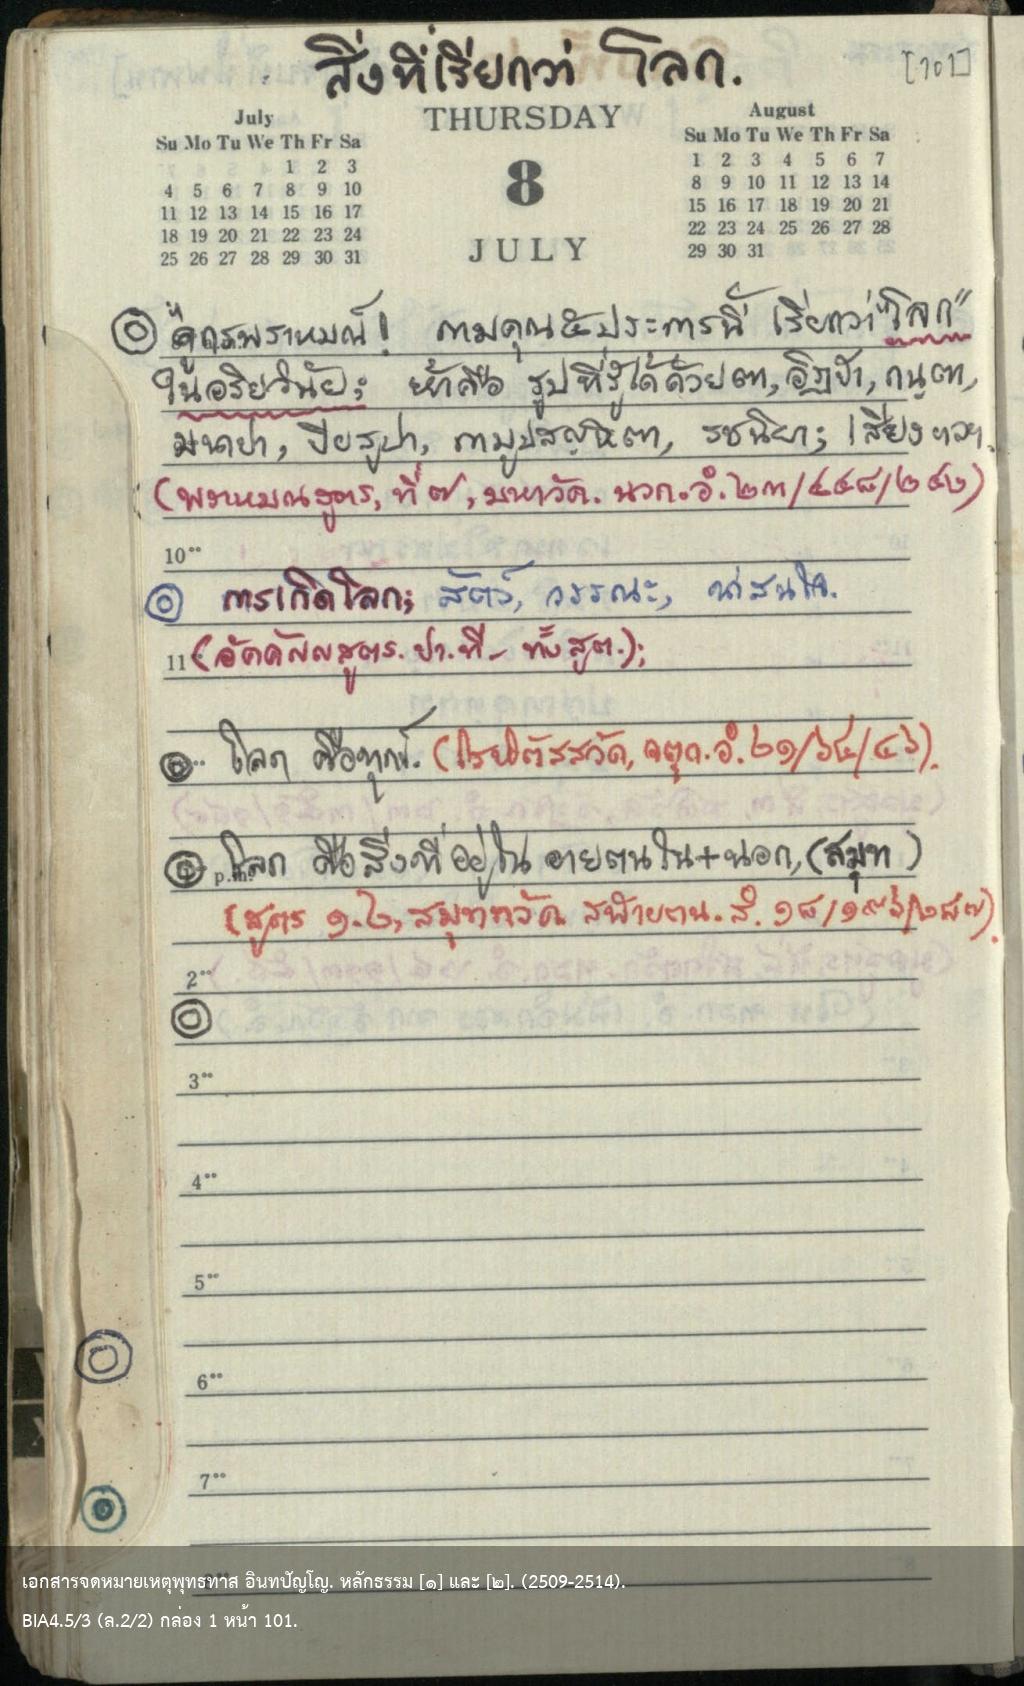 สิ่งที่เรียกว่า โลก.
[101]
July
Su Mo Tu We Th Fr Sa
1 2 3
4 5 6 7 8 9 10
11 12 13 14 15 16 17
18 19 20 21 22 23 24
25 26 27 28 29 30 31
THURSDAY
8
JULY
August
Su Mo Tu We Th Fr Sa
1 2 3 4 5 6 7
8 9 10 11 12 13 14
15 16 17 18 19 20 21
22 23 24 25 26 27 28
29 30 31
ดูกรพราหมณ์! กามคุณ ๕ ประการนี้ เรียกว่า "โลก"
ในอริยวินัย; ห้าคือ รูปที่รู้ได้ด้วยตา, อิฏฐา, กนฺตา,
มนาปา, ปิยรูปา, กามูปสญฺหิตา, รชนิยา; เสียง ฯลฯ.
(พราหมณสูตร, ที่ ๗, มหาวัค. นวก. อํ. ๒๓/๔๔๘/๒๔๒)
10
การเกิดโลก; สัตว์, วรรณะ, น่าสนใจ.
11 (อัคคัญญสูตร. ปา. ที. ทั้งสูตร.);
โลก คือทุกข์. (โรหิตัสสวัค, จตุก. อํ. ๒๑/๖๔/๔๖).
p.m.
โลก คือสิ่งที่อยู่ใน อายตนใน+นอก, (สมุท)
(สูตร ๑.๒, สมุททวัค สฬายตน. สํ. ๑๘/๑๙๖/๒๘๗).
2
3
4
5
6
7
เอกสารจดหมายเหตุพุทธทาส อินทปัญโญ. หลักธรรม [๑] และ [๒]. (2509-2514).
BIA4.5/3 (ล.2/2) กล่อง 1 หน้า 101.